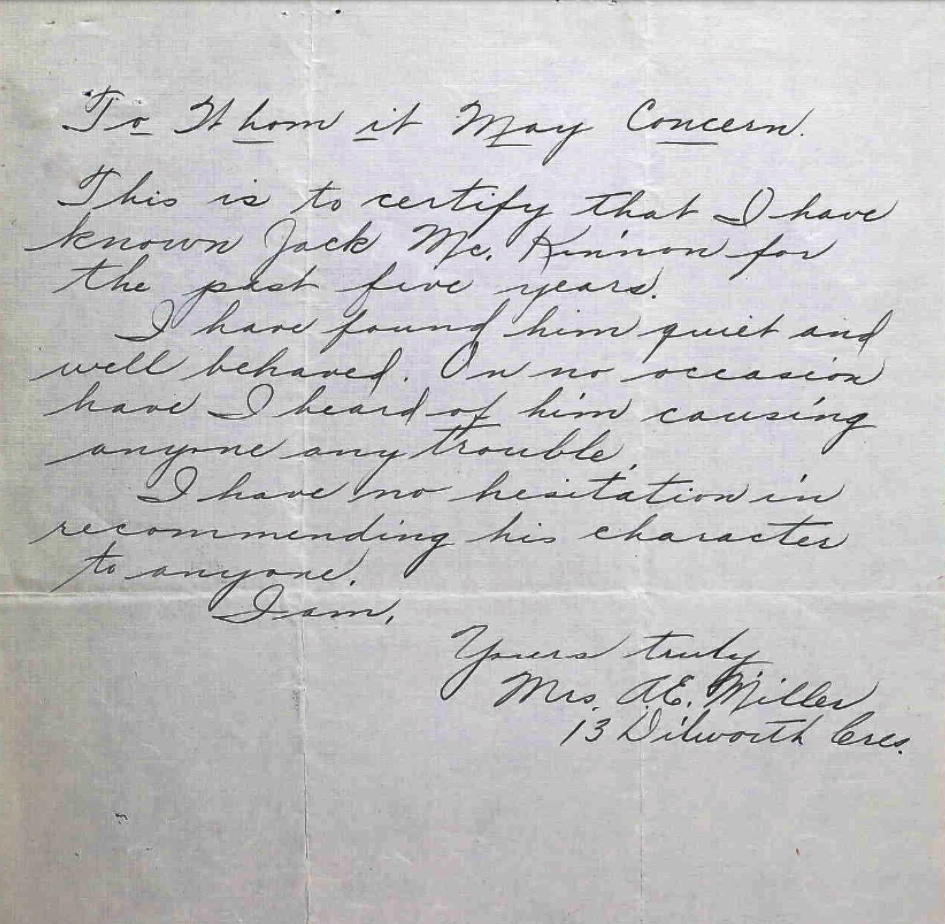 To Whom it May Concern.
This is to certify that I have
known Jack Mc. Kinnon for
the past five years.
I have found him quiet and
well behaved. On no occasion
have I heard of him causing
anyone any trouble.
I have no hesitation in
recommending his character
to anyone.
I am,
Yours truly
Mrs. A.E. Miller
13 Dilworth Cres.